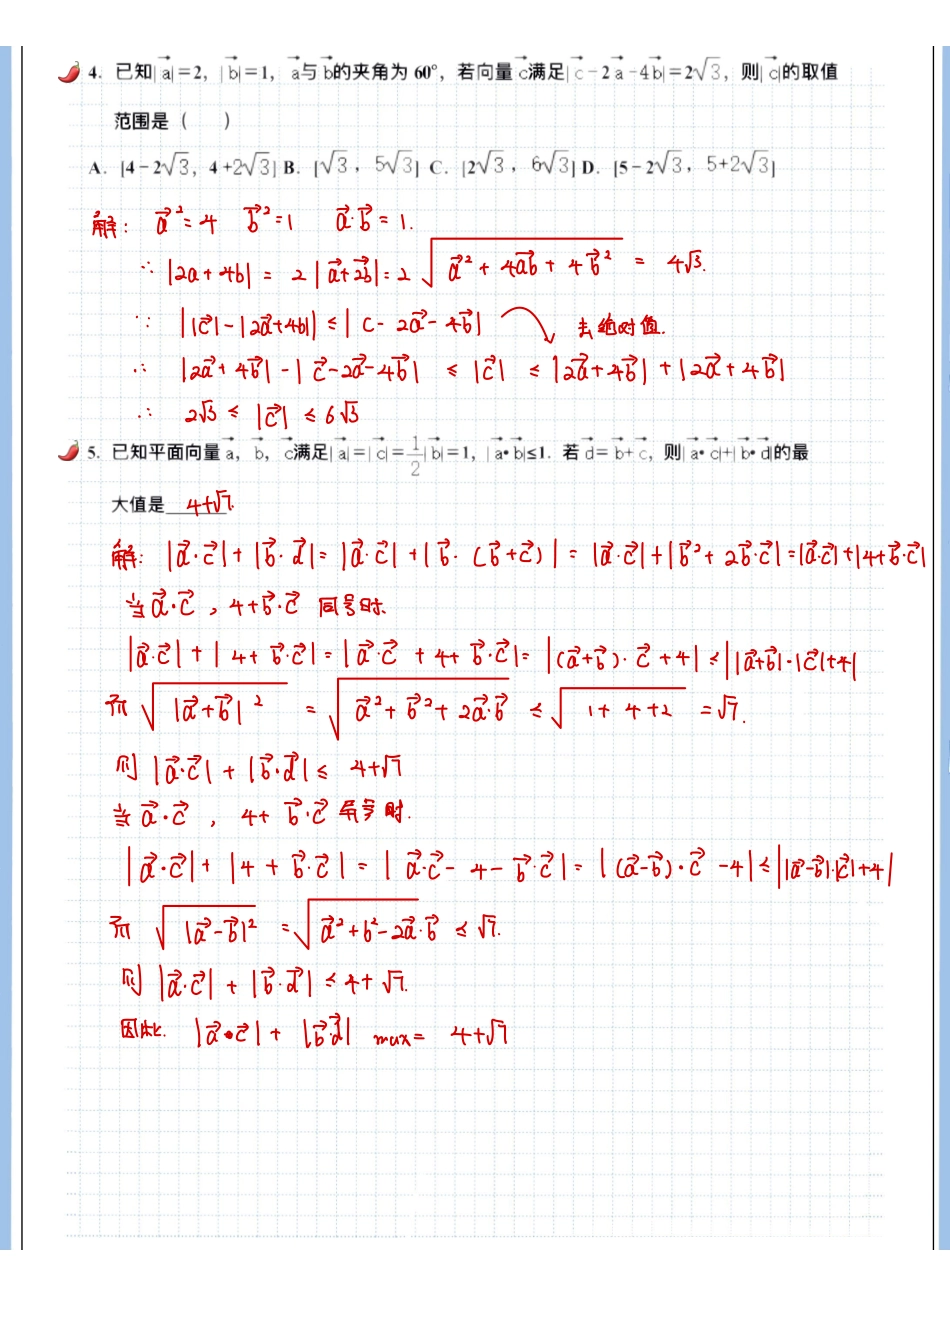 4. 已知|a⃗|=2，|b⃗|=1，a⃗与b⃗的夹角为 60°，若向量c⃗满足|c⃗-2a⃗-4b⃗|=2√3，则|c⃗|的取值
范围是（ ）
A. [4-2√3，4+2√3] B. [√3，5√3] C. [2√3，6√3] D. [5-2√3，5+2√3]
解: a⃗²=4 b⃗²=1 a⃗·b⃗=1.
∴ |2a+4b| = 2|a⃗+2b⃗|=2√(a⃗²+4a⃗b⃗+4b⃗²) = 4√3.
∵ ||c⃗|-|2a⃗+4b|| ≤ |c-2a⃗-4b⃗| 去绝对值.
∴ |2a⃗+4b⃗|-|c⃗-2a⃗-4b⃗| ≤ |c⃗| ≤ |2a⃗+4b⃗|+|2a⃗+4b⃗|
∴ 2√3 ≤ |c⃗| ≤ 6√3
5. 已知平面向量a⃗，b⃗，c⃗满足|a⃗|=|c⃗|=1/2|b⃗|=1，|a⃗•b⃗|≤1．若d⃗=b⃗+c⃗，则|a⃗•c⃗|+|b⃗•d⃗|的最
大值是 4+√7.
解: |a⃗·c⃗|+|b⃗·d⃗|=|a⃗·c⃗|+|b⃗·(b⃗+c⃗)| = |a⃗·c⃗|+|b⃗²+2b⃗·c⃗|=|a⃗·c⃗|+|4+b⃗·c⃗|
当a⃗·c⃗，4+b⃗·c⃗ 同号时.
|a⃗·c⃗|+|4+b⃗·c⃗|=|a⃗·c⃗+4+b⃗·c⃗|=|(a⃗+b⃗)·c⃗+4| ≤ ||a⃗+b⃗|·|c⃗|+4|
而 √(|a⃗+b⃗|²) = √(a⃗²+b⃗²+2a⃗·b⃗) ≤ √(1+4+2) = √7.
则 |a⃗·c⃗|+|b⃗·d⃗| ≤ 4+√7
当 a⃗·c⃗，4+b⃗·c⃗ 异号时.
|a⃗·c⃗|+|4+b⃗·c⃗| = |a⃗·c⃗-4-b⃗·c⃗|=|(a⃗-b⃗)·c⃗-4| ≤ ||a⃗-b⃗|·|c⃗|+4|
而 √(|a⃗-b⃗|²) = √(a⃗²+b²-2a⃗·b⃗) ≤ √7.
则 |a⃗·c⃗|+|b⃗·d⃗| ≤ 4+√7.
因此. |a⃗·c⃗|+|b⃗·d⃗| max= 4+√7